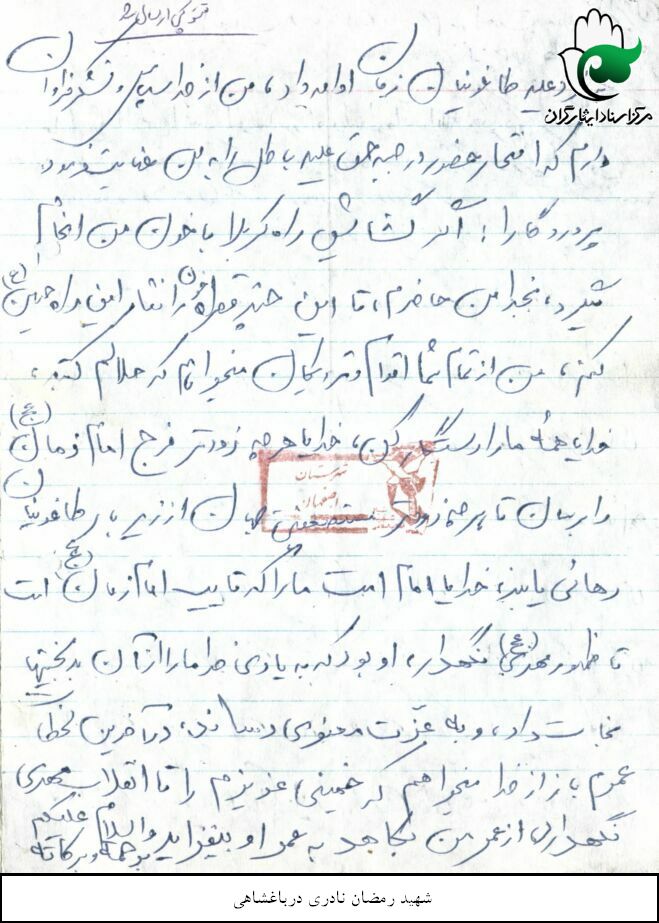 فتوکپی ارسال شد
مرکز اسناد ایثارگران
علیه طاغوتیان زمان ادامه داد، من از خدا سپاس و تشکر فراوان
دارم که افتخار حضور در جبهه حق علیه باطل را به من عنایت فرمود
پروردگارا! اگر گشایش راه کربلا با خون من انجام
میگیرد، بخدا من حاضرم، تا این چند قطره خون را نثار این راه حسین (ع)
کنم، من از تمام شما اقوام و نزدیکان میخواهم که حلالم کنید،
خدایا همهٔ ما را رستگار کن، خدایا هر چه زودتر فرج امام زمان (عج)
را برسان تا هر چه زودتر مستضعفین جهان از زیر بار طاغوتیان
رهائی یابند، خدایا امام امت ما را که نایب امام زمان (عج) است
تا ظهور مهدی (عج) نگهدار، او بود که به یاری خدا ما را از آن بدبختیها
نجات داد، و به عزّت معنوی رساند، در آخرین لحظات
عمرم باز از خدا میخواهم که خمینی عزیزم را تا انقلاب مهدی
نگهداری از عمر من بکاهد به عمر او بیفزاید والسلام علیکم
و رحمة ... و برکاته
شهرستان
اصفهان
شهید رمضان نادری درباغشاهی